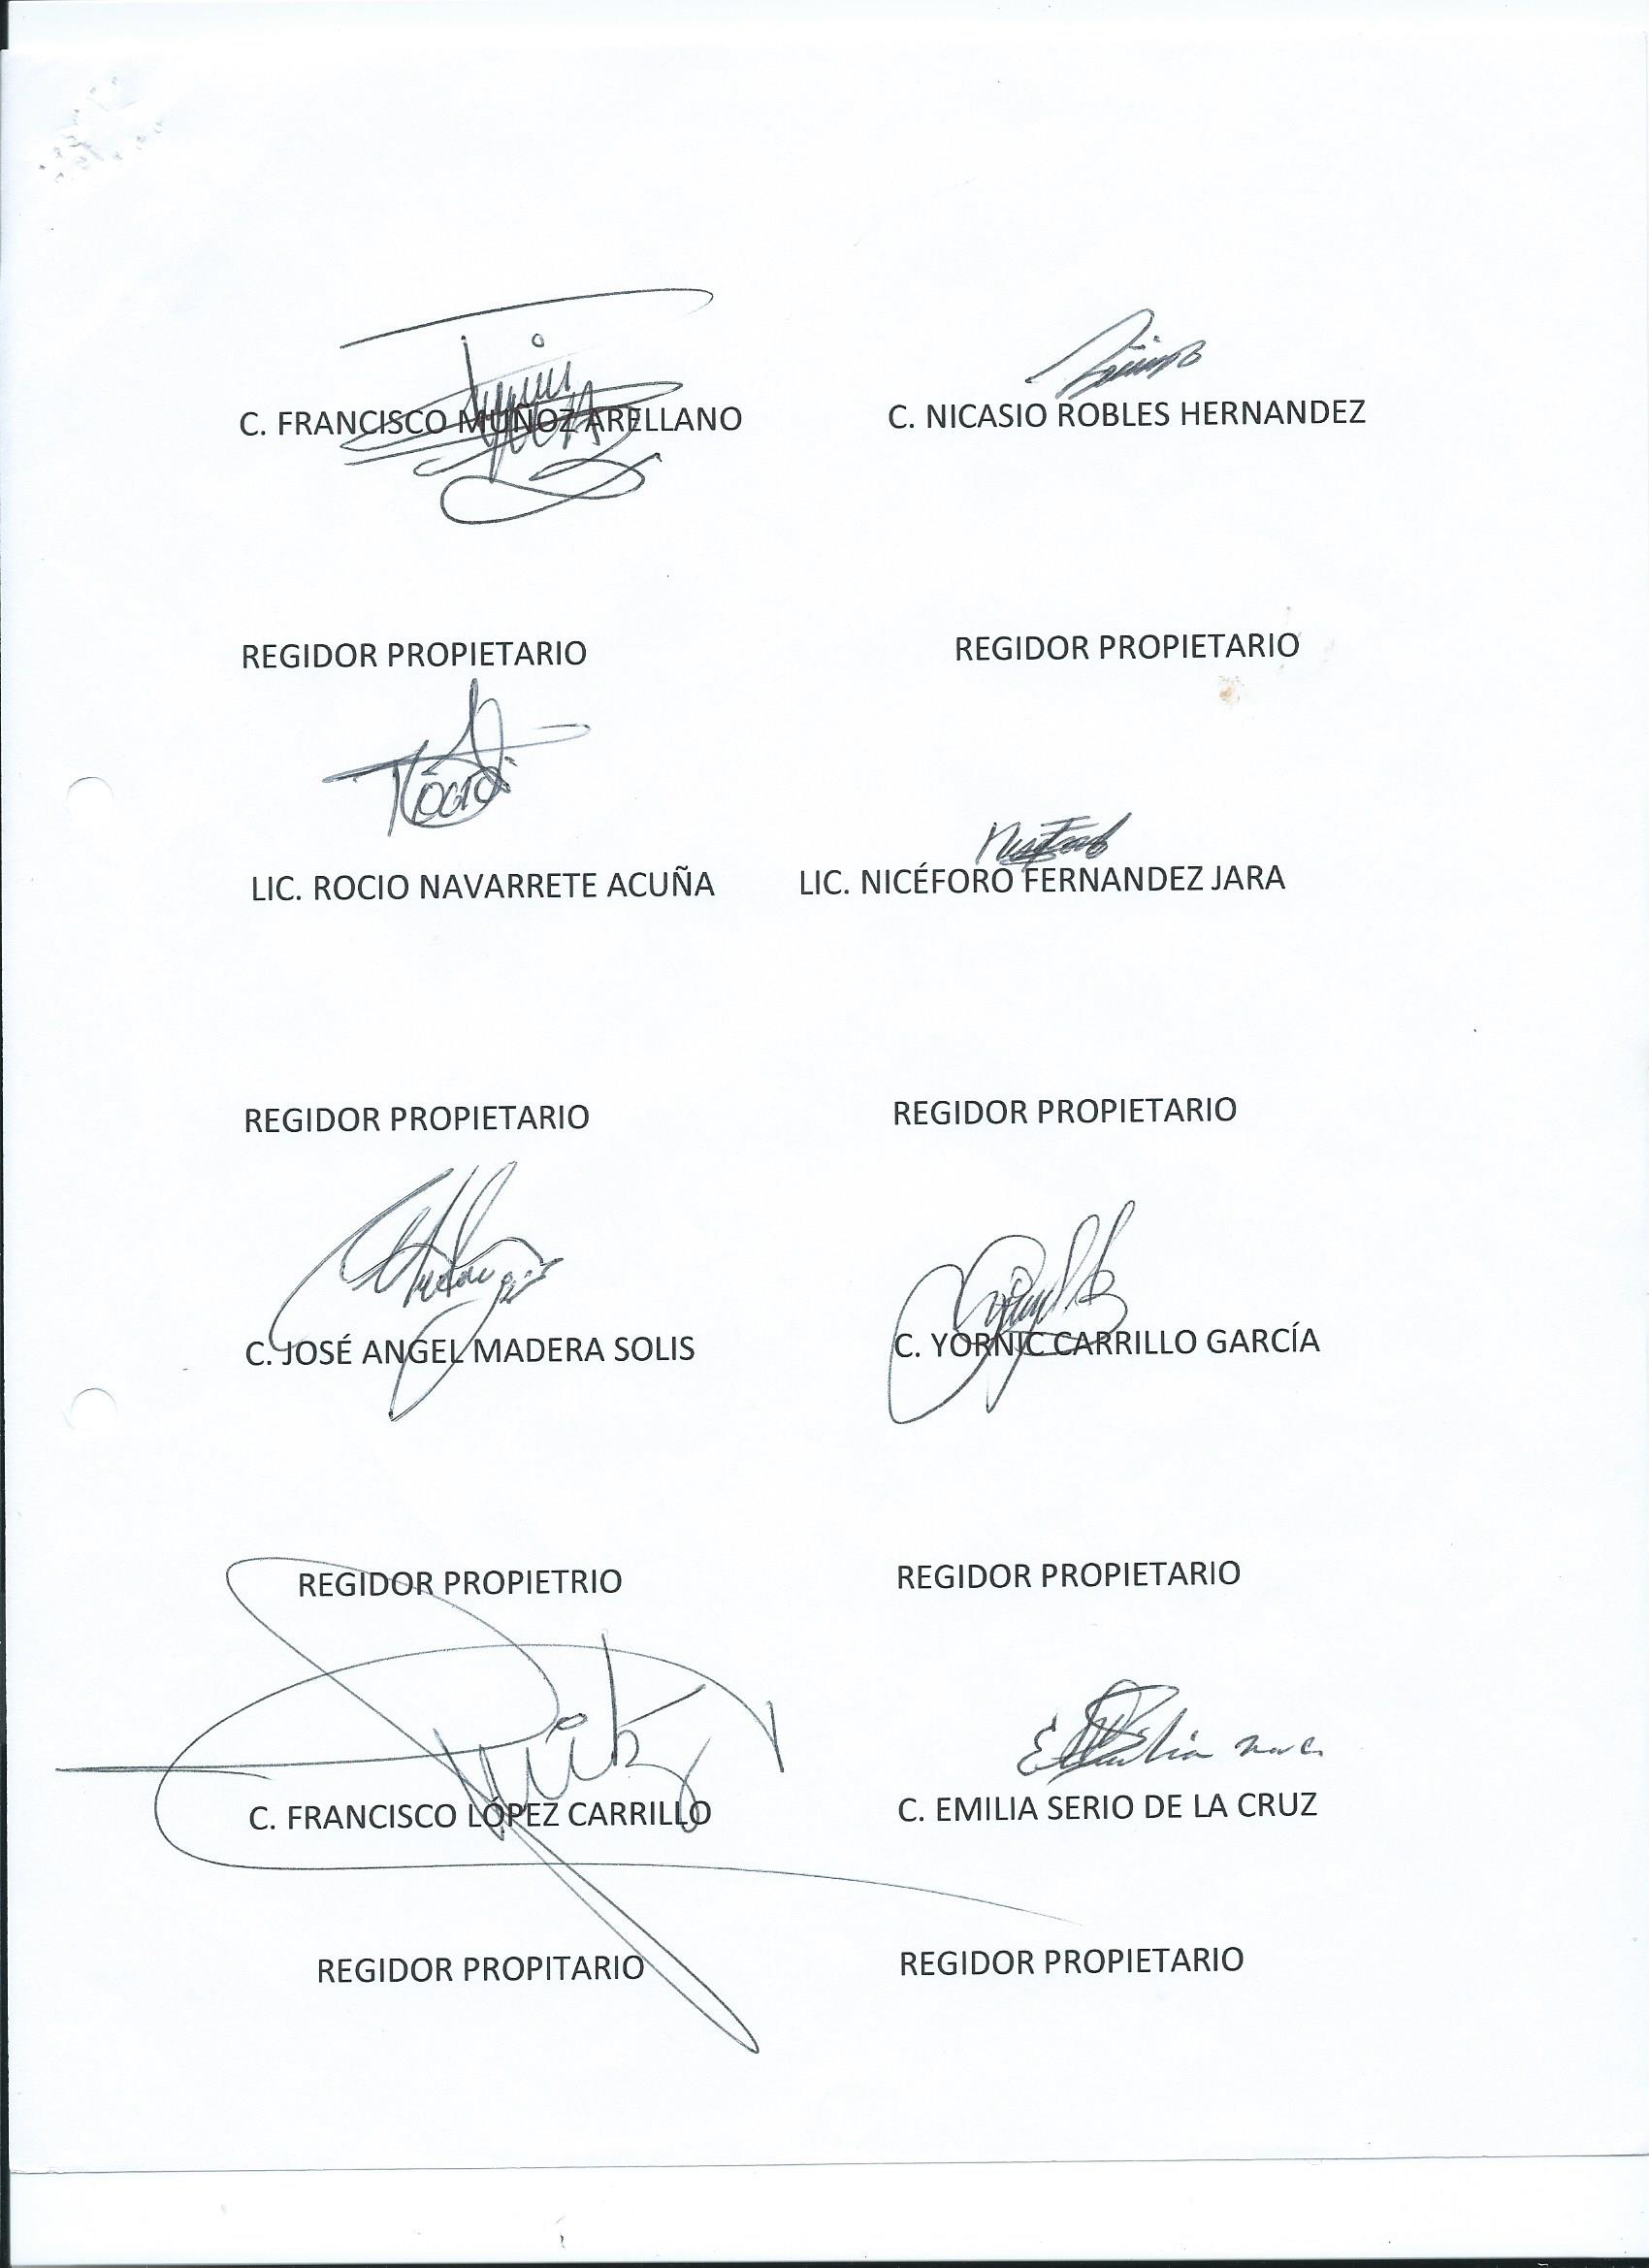 C. FRANCISCO MUÑOZ ARELLANO C. NICASIO ROBLES HERNANDEZ
REGIDOR PROPIETARIO REGIDOR PROPIETARIO
LIC. ROCIO NAVARRETE ACUÑA LIC. NICÉFORO FERNANDEZ JARA
REGIDOR PROPIETARIO REGIDOR PROPIETARIO
C. JOSÉ ANGEL MADERA SOLIS C. YORNIC CARRILLO GARCÍA
REGIDOR PROPIETRIO REGIDOR PROPIETARIO
C. FRANCISCO LÓPEZ CARRILLO C. EMILIA SERIO DE LA CRUZ
REGIDOR PROPITARIO REGIDOR PROPIETARIO